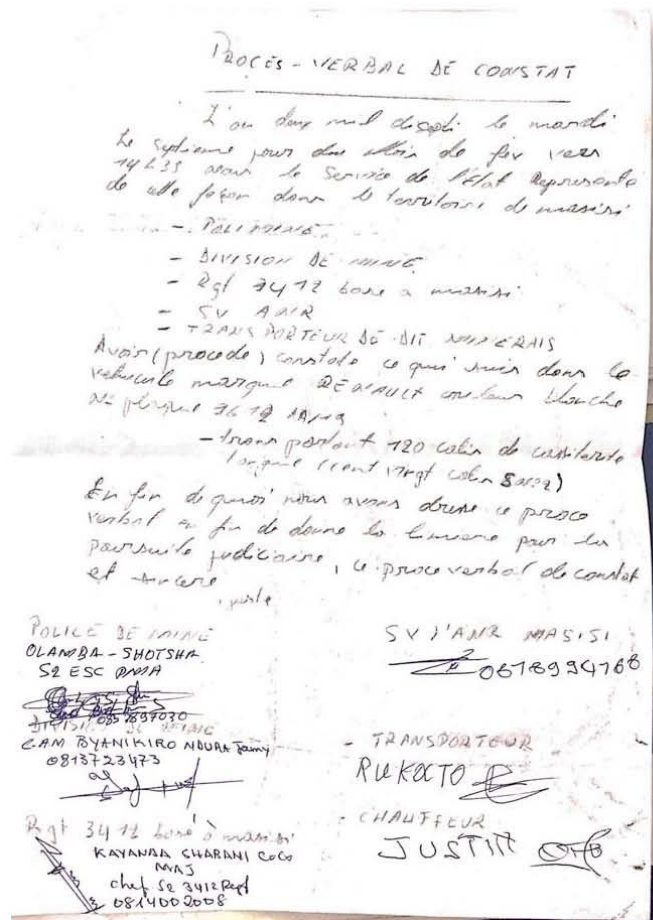 PROCES-VERBAL DE CONSTAT
L'an deux mil le mardi
Le septieme jour du Mois de fev vers
14h35 avons le Service de l'Etat Represente
de elle façon dans le territoire de masisi
- POLI MINE
- DIVISION DE MINE
- Rgt 3412 base a masisi
- SV ANR
- TRANSPORTEUR DE DIT MINERAIS
Avoir (procede) constate ce qui suis dans le
vehicule marque RENAULT couleur blanche
N° plaque
- transportant 120 colis de
(cent vingt colis)
En fin de quoi nous avons dresse ce proce
verbal a fin de donne la lumiere pour la
poursuite judiciaire, ce proce verbal de constat
et sincere
, juste
POLICE DE MINE
OLAMBA-SHOTSHA
S2 ESC PMA
DIVISION DE MINE
CAM BYANIKIRO NDURA
0813723473
Rgt 3412 basé à masisi
KAYANDA SHABANI COCO
MAJ
chef S2 3412 Regt
0814002008
SV D'ANR MASISI
- TRANSPORTEUR
- CHAUFFEUR
JUSTIN